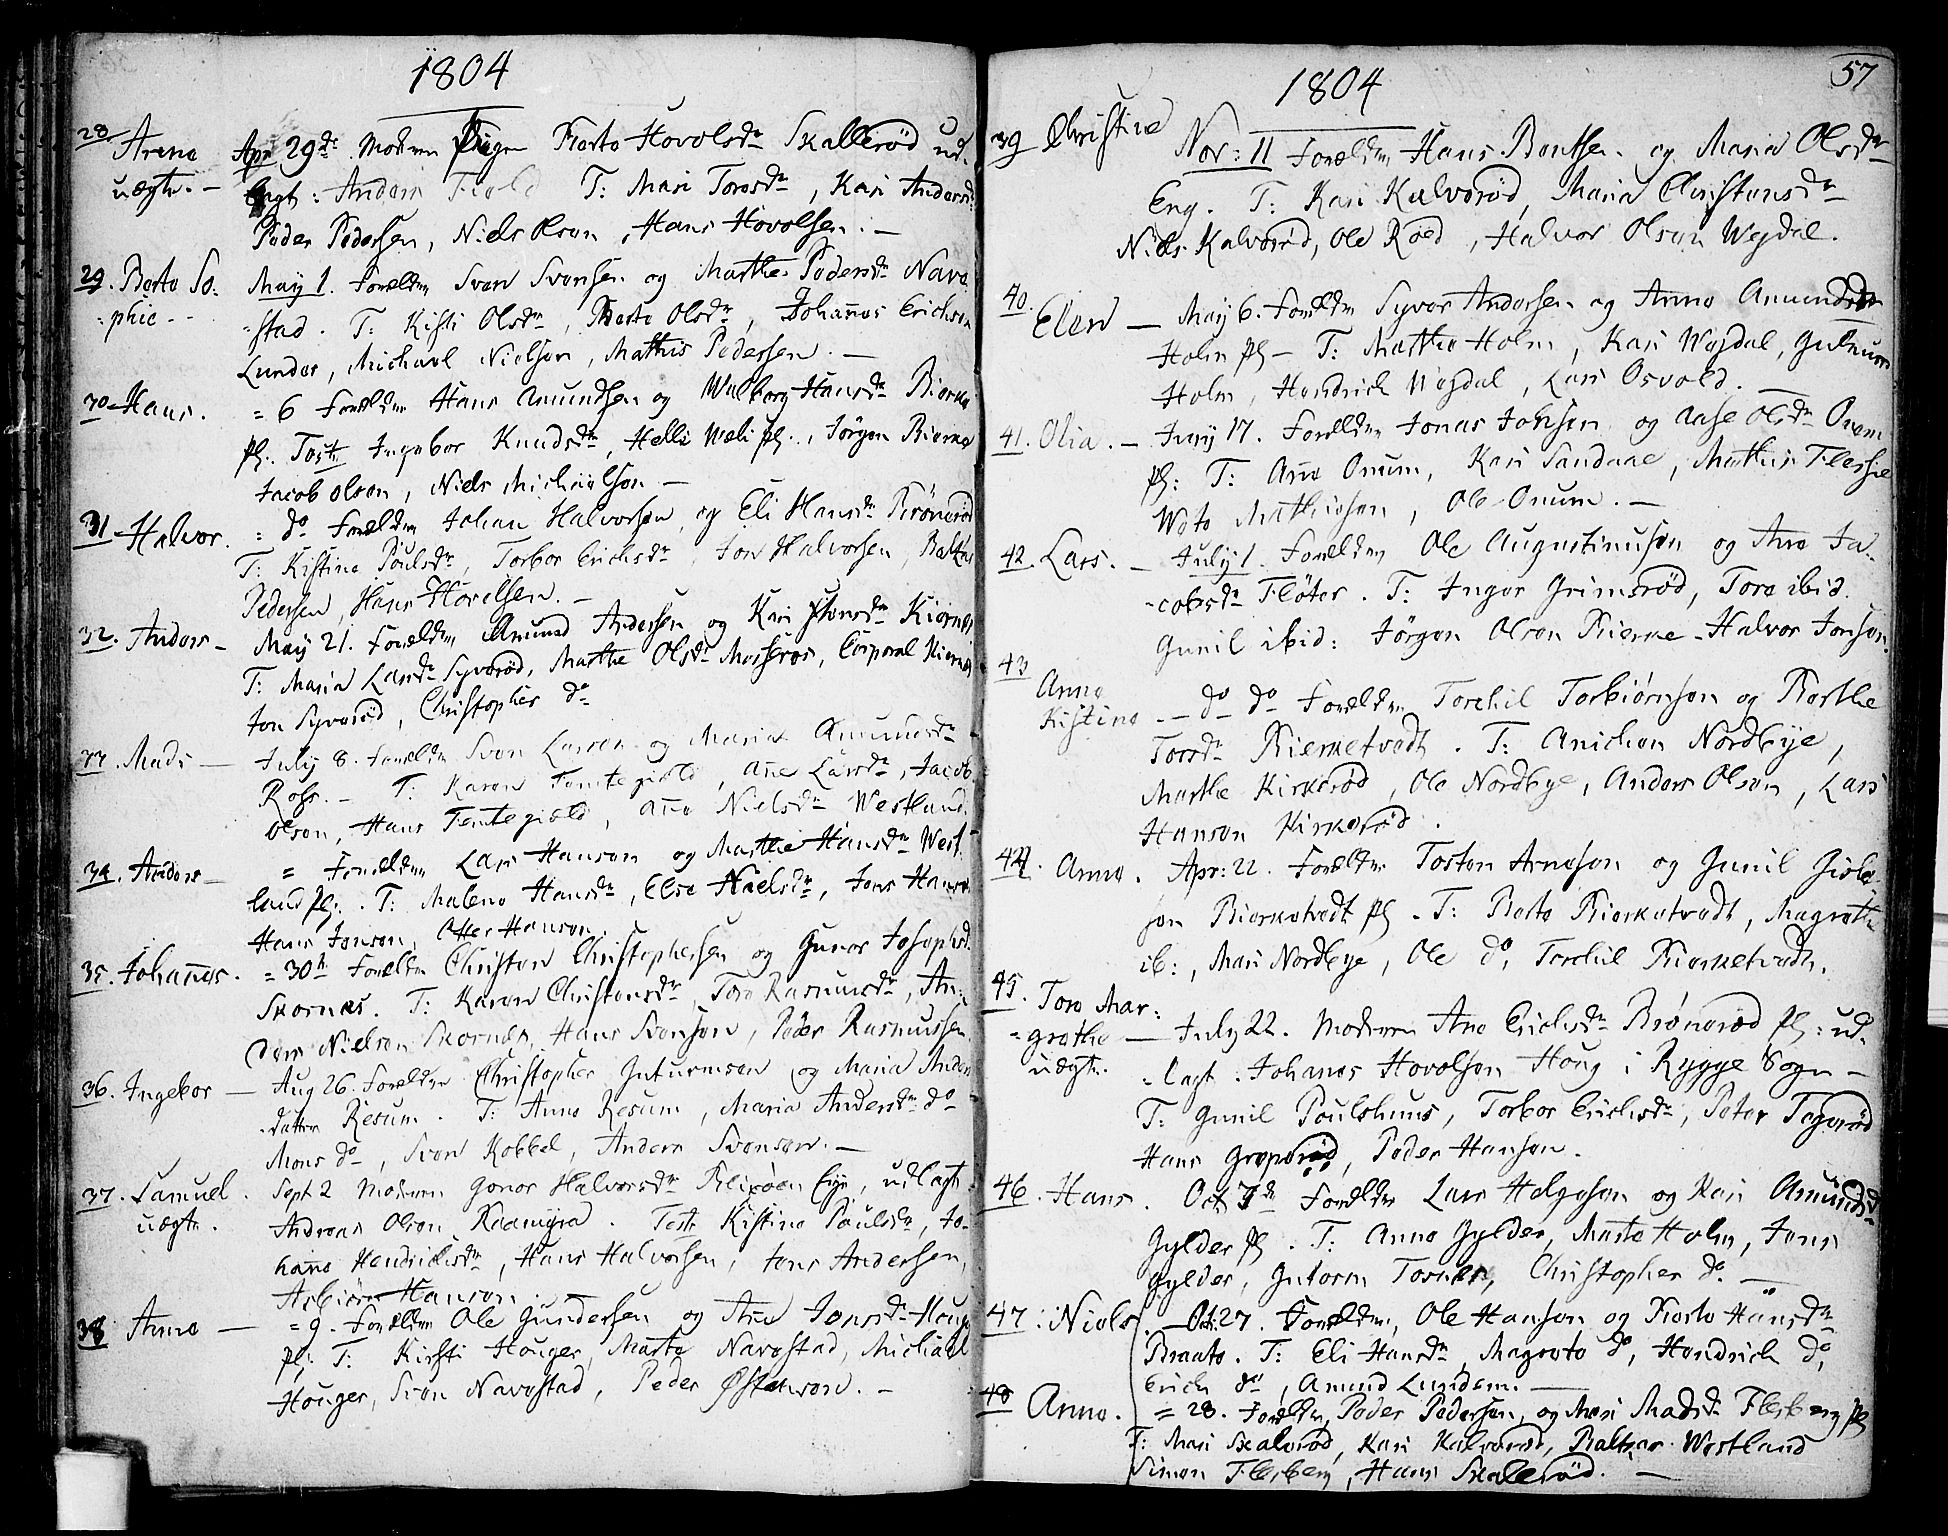 1804
28 Arena Apr 29de Modern Pigen Berte Hovolsdr Skallerød ud-
uægte. - lagt: Anders Fiold T: Mari Torosdr, Kari Andersdr
Peder Pedersen, Niels Olson, Hans Hovolsen. -
29. Berte So- May 1. Forældre Sven Svensen og Marthe Pedersdr Nave-
-phie - - -stad. T: Kisti Olsdr, Berte Olsdr, Johañes Erichsen
Lunder, Michael Nielson, Mathis Pedersen. -
30 Hans. = 6 Forældre Hans Amundsen og Walborg Hansdr Bierke
pl: Test Ingebor Knudsdr, Helli Wæli pl:, Jørgen Bierke
Jacob Olson, Niels Michaelson -
31 Halvor. = do Forældre Johan Halvorsen og Eli Hansdr Brønerød
T: Kistine Poulsdr, Torbor Erichsdr, Jon Halvorsen, Baltzer
Pedersen, Hans Hovelsen. -
32. Anders - May 21. Forældre Amund Andersen og Kari Kiernes
T: Maria Larsdr Syverød, Marthe Olsdr Mosseros, Corporal Kiernes
Jon Syverød, Christopher do
33. Mads - July 8. Forældre Sven Larsen og Maria Amundsdr
Røfs. - T: Karen Tomtegiold, Añe Larsdr, Jacob
Olson, Hans Tomtegiold, Añe Nielsdr Westlund.
34. Anders - = Forældre Lars Hanson og Marthe Hansdr West-
lund pl:. T: Malene Hansdr, Else Nielsdr, Jens Hanson
Hans Jonson, Otter Hanson.
35. Johañes. = 30te Forældre Christen Christophersen og Gunor Josephsd
Skornes. T: Karen Christensdr, Tore Rasmusdr, An-
ders Nielson Skornes, Hans Svenson, Peder Rasmussen
36. Ingebor - Aug 26. Forældre Christopher Guturmsen og Maria Anders
datter Resum. T: Anne Resum, Maria Andersdr do
Mons do, Sven Kobbel, Anders Svenson. -
37. Samuel. Sept 2 Modern Gonor Halvorsdr Blixøen Eje, udlagt
uægte. Andreas Olson Kaamyra. Test Kistine Poulsdr, Jo-
hañe Hendrichsdr, Hans Halvorsen, Jens Andersen,
Asbiørn Hanson.
38 Anne - = 9. Forældre Ole Gundersen og Añe Jonsdr Houg
pl: T: Kirsti Houger, Marte Navestad, Michael
Houger, Sven Navestad, Peder Østenson. -
57
1804
39 Christine Nov: 11 Forældre Hans Bentsen og Maria Olsdr
Eng. T: Kari Kalverød, Maria Christensdr
Niels Kalverød, Ole Roed, Halvor Olson Wejdal.
40. Elen - May 6. Forældre Syver Andersen og Anne Amundsdr
Holm pl - T: Marthe Holm, Kari Wejdal,
Holm, Hendrich Wejdal, Lars Osvold. -
41. Olia. - Juny 17. Forældre Jonas Johsen og Aase Olsdr Onum
pl: T: Añe Onum, Kari Sandaae, Mathis Flesche
Mathiesen, Ole Onum. -
42. Lars. - July 1. Forældre Ole Augustinusøn og Añe Ja-
-cobsdr Fløter. T: Inger Grimsrød, Tore ibid.
Gunil ibid: Jørgen Olson Bierke - Halvor Jonson.
43 Anne
Kistine - do do Forældre Torchil Torbiørnson og Berthe
Torsdr Bierketvedt. T: Anichen Nordbye,
Marthe Kirkerød, Ole Nordbye, Anders Olson, Lars
Hanson Kirkerød.
44. Anne. Apr: 22. Forældre Tosten Arneson og Gunil Gisle-
son Bierketvedt pl. T: Berte Bierketvedt, Magrethe
ib:, Mari Nordbye, Ole do, Torchil Bierketvedt.
45. Tore Mar:
=grethe - July 22. Modern Añe Erichsdr Brønerød pl: ud-
uægte. -lagt. Johanes Hovelson Houg i Rygge Sogn -
T: Gunil Poulshuus, Torbor Erichsdr, Peter Tegnerød
Hans Groperød, Peder Hanson.
46. Hans. Oct 7de Forældre Lars Helgeson og Kari Amundsd
Gylder pl. T: Anne Gylder, Marte Holm, Jens
Gylder, Gutorm Tosnes, Christopher do. -
47: Niels. - Oct: 27. Forældre, Ole Hanson og Berte Hansdr
Braate. T: Eli Hansdr, Magrete do, Hendrich do,
Erich do, Amund Lundem. -
48 Anne. = 28. Forældre Peder Pedersen, og Mari Madsdr Flesberg pl
T: Mari Skalerød, Kari Kalverød, Baltzer Westlund
Simon Flesberg, Hans Skallerød. -